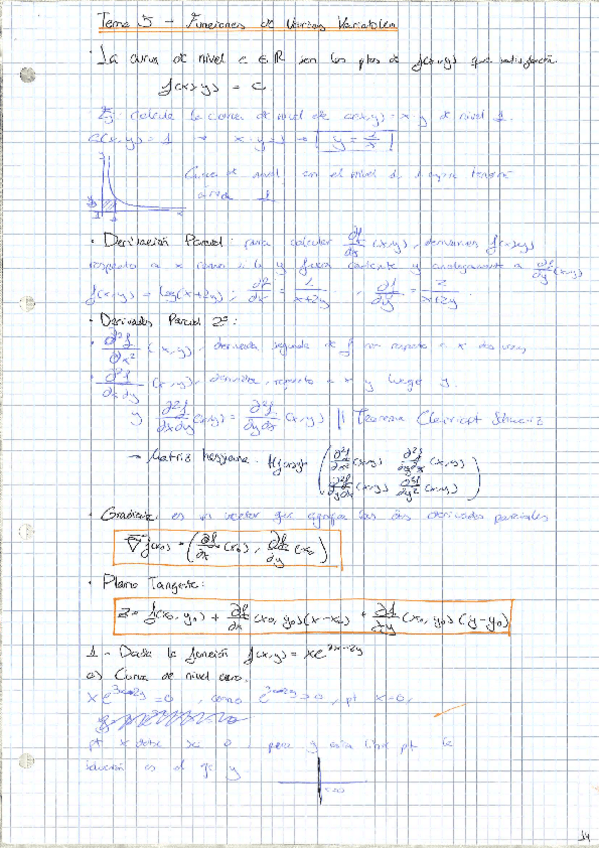 Tema 5 - Funciones de Varias Variables
· La curva de nivel c ∈ ℝ son los ptos de f(x,y) que satisfacen
f(x,y) = C
Ej: calcule la curva de nivel de c(x,y) = x·y de nivel 1.
c(x,y) = 1 → x·y = 1 → y = 1/x
Curva de nivel, en el nivel de 1
área 1
· Derivación Parcial: para calcular ∂f/∂x (x,y), derivamos f(x,y)
respecto a x como si la y fuera constante y analogamente a ∂f/∂y (x,y)
f(x,y) = log(x+2y); ∂f/∂x = 1/(x+2y), ∂f/∂y = 2/(x+2y)
· Derivadas Parcial 2ª:
· ∂²f/∂x² (x,y), derivada segunda de f con respecto a x dos veces
· ∂²f/∂x∂y (x,y), respecto a x y luego y.
y ∂²f/∂x∂y (x,y) = ∂²f/∂y∂x (x,y) || Teorema
→ Matriz hessiana. Hf(x,y) = ( ∂²f/∂x² (x,y) ∂²f/∂y∂x (x,y)
∂²f/∂y∂x (x,y) ∂²f/∂y² (x,y) )
· Gradiente: es un vector que agrupa las dos derivadas parciales
∇f(x₀) = (∂f/∂x (x₀), ∂f/∂y (x₀))
· Plano Tangente:
z = f(x₀, y₀) + ∂f/∂x (x₀, y₀)(x-x₀) + ∂f/∂y (x₀, y₀)(y-y₀)
1 - Dada la función f(x,y) = xe^(3x-2y)
a) Curva de nivel cero.
x e^(3x-2y) = 0, como e^(3x-2y) > 0, pt x=0,
pt x debe x = 0 pero y está libre pt la
solución es el eje y
x=0
14